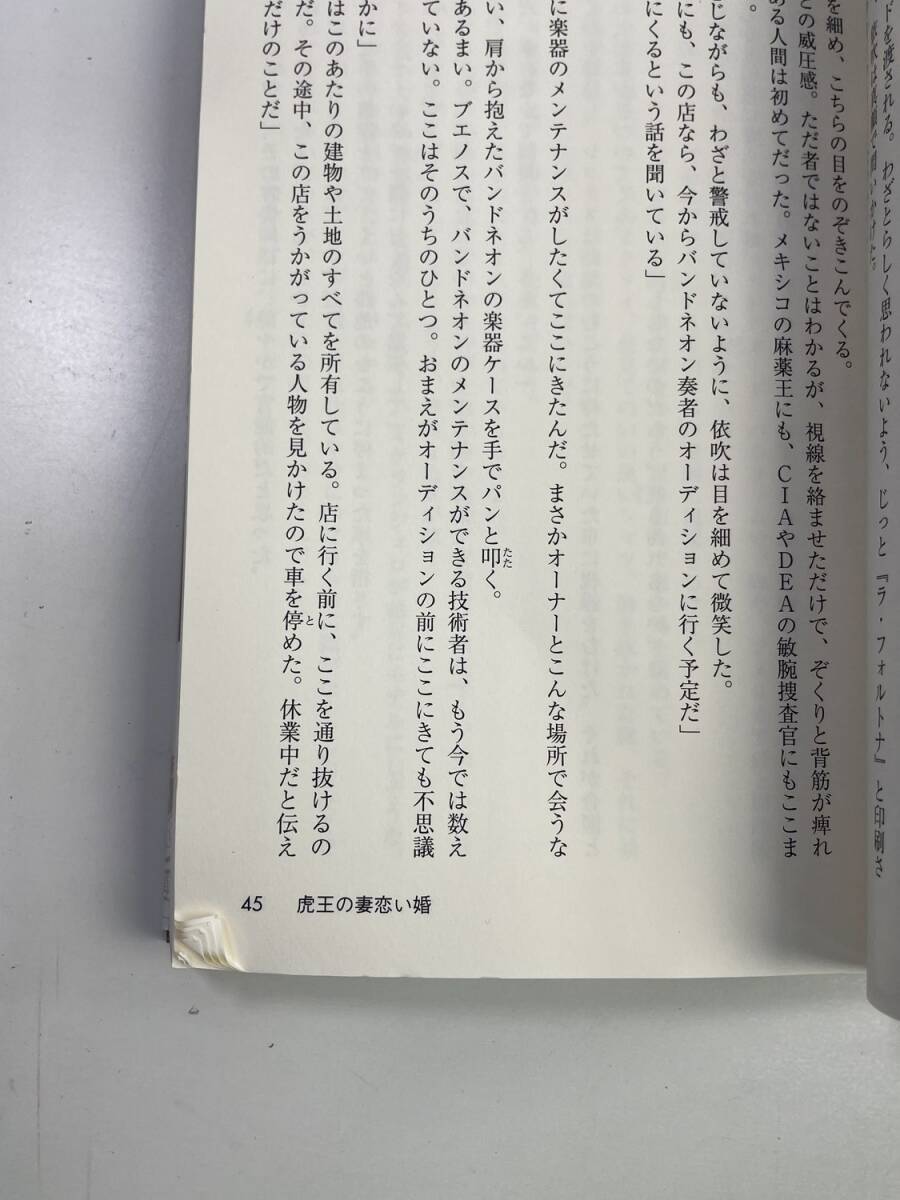 ドを渡される。わざとらしく思われないよう、じっと『ラ・フォルトナ』と印刷さ
を細め、こちらの目をのぞきこんでくる。
どの威圧感。ただ者ではないことはわかるが、視線を絡ませただけで、ぞくりと背筋が痺れ
ある人間は初めてだった。メキシコの麻薬王にも、CIAやDEAの敏腕捜査官にもここま
。
じながらも、わざと警戒していないように、依吹は目を細めて微笑した。
にも、この店なら、今からバンドネオン奏者のオーディションに行く予定だ」
にくるという話を聞いている」
に楽器のメンテナンスがしたくてここにきたんだ。まさかオーナーとこんな場所で会うな
い、肩から抱えたバンドネオンの楽器ケースを手でパンと叩く。
たた
あるまい。ブエノスで、バンドネオンのメンテナンスができる技術者は、もう今では数え
ていない。ここはそのうちのひとつ。おまえがオーディションの前にここにきても不思議
かに」
はこのあたりの建物や土地のすべてを所有している。店に行く前に、ここを通り抜けるの
だ。その途中、この店をうかがっている人物を見かけたので車を停めた。休業中だと伝え
と
だけのことだ」
45 虎王の妻恋い婚